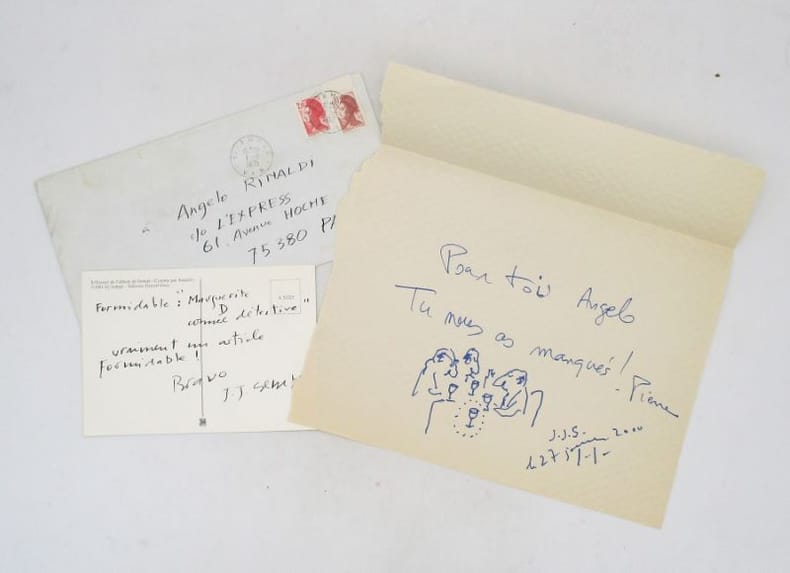 à Angelo RINALDI
c/o L'EXPRESS
61. Avenue HOCHE
75380 PA
Formidable : "Marguerite
D
comme détective"
vraiment un article
Formidable !
Bravo
J.J
Pour toi Angelo
Tu nous as manqués !
- Pierre
J.J.S.
2000
le 27